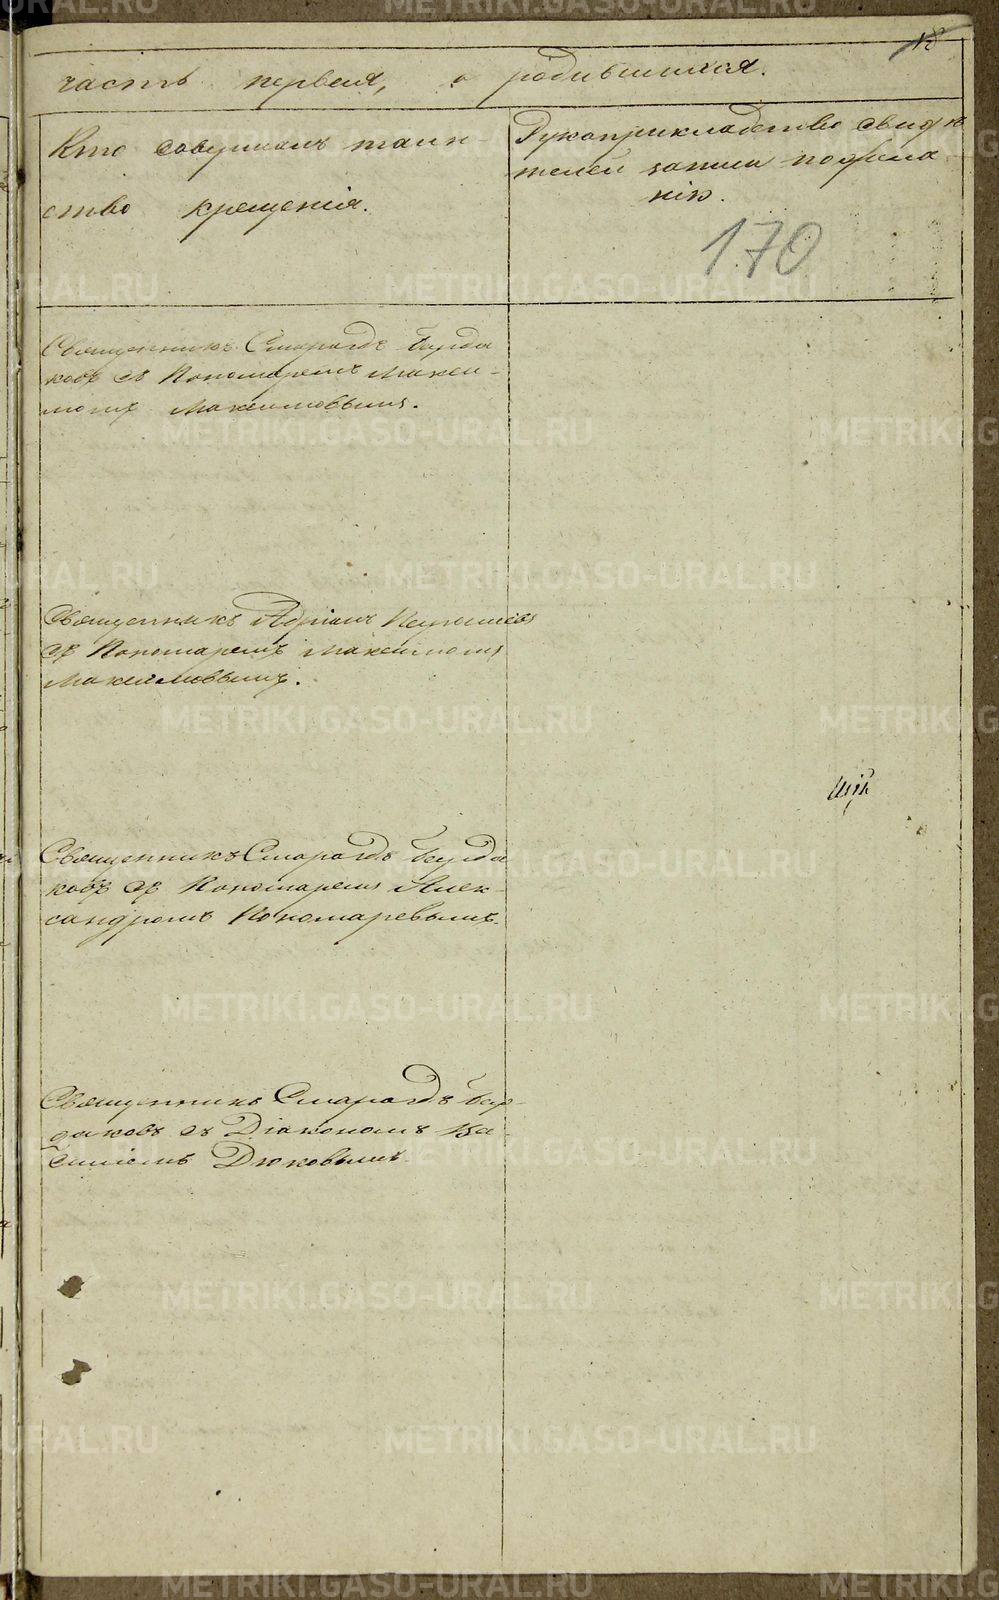 18
часть первая, о родившихся.
Кто совершалъ таин-
ство крещенія.
Рукоприкладство свидѣ
телей записи по жела
нію.
170
Священникъ Смарагдъ Бурда
ковъ съ Пономаремъ Макси-
момъ Максимовымъ.
Священникъ Адріанъ
съ Пономаремъ Максимомъ
Максимовымъ.
Священникъ Смарагдъ Бурда
ковъ съ Пономаремъ Алек-
сандромъ Пономаревымъ.
Священникъ Смарагдъ Бур-
даковъ съ Діакономъ Ва-
силіемъ Дюковымъ.
METRIKI.GASO-URAL.RU